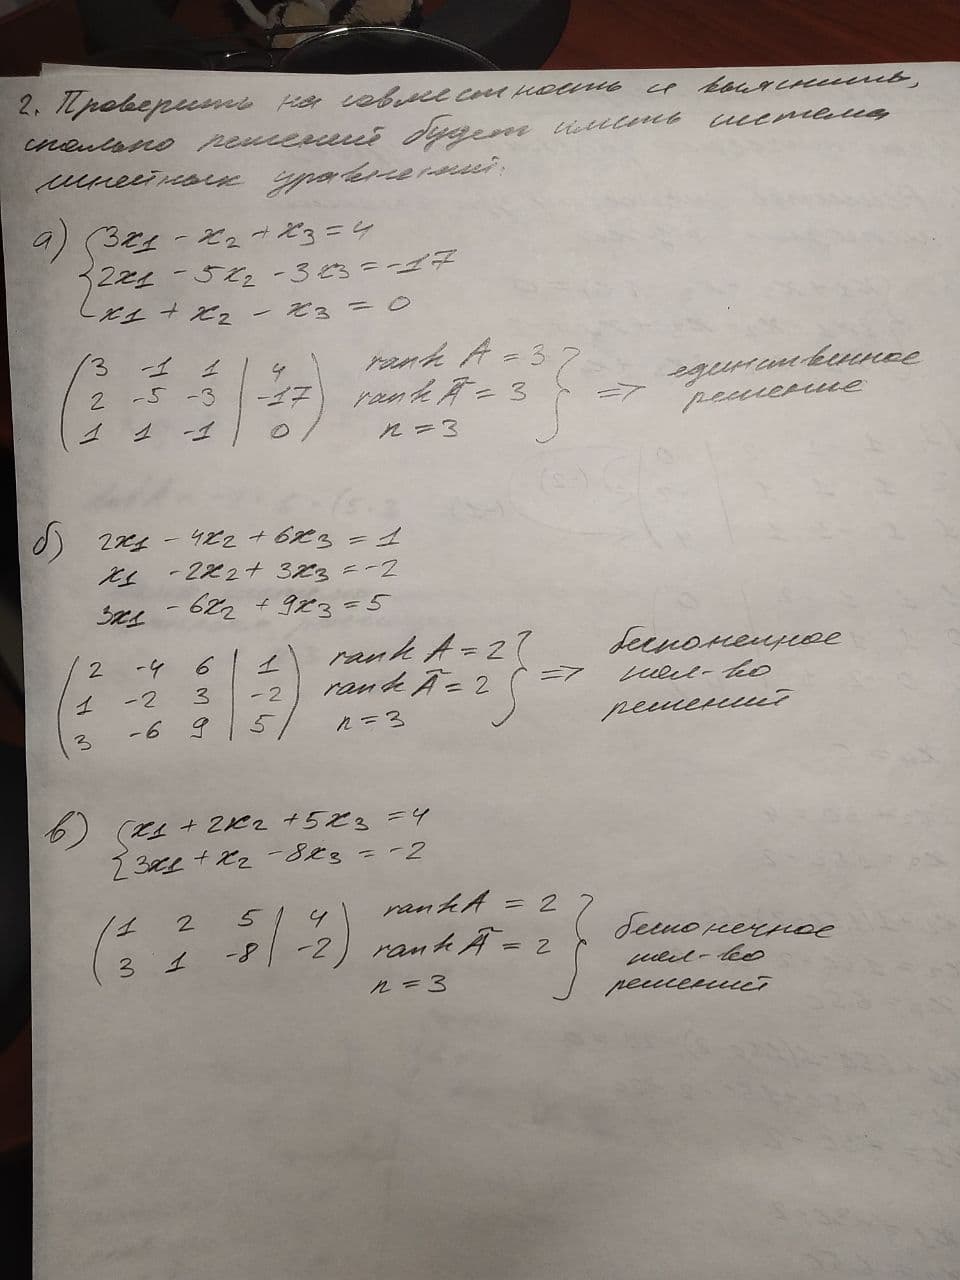 2. Проверить на совместность и выяснить,
сколько решений будет иметь система
линейных уравнений.
а) {3x1 - x2 + x3 = 4
2x1 - 5x2 - 3x3 = -17
x1 + x2 - x3 = 0
(3 -1 1 | 4) rank A = 3
2 -5 -3 | -17 rank Ã = 3 } => единственное решение
1 1 -1 | 0 n = 3
б) 2x1 - 4x2 + 6x3 = 1
x1 - 2x2 + 3x3 = -2
3x1 - 6x2 + 9x3 = 5
(2 -4 6 | 1) rank A = 2
1 -2 3 | -2 rank Ã = 2 } => бесконечное кол-во решений
3 -6 9 | 5 n = 3
в) {x1 + 2x2 + 5x3 = 4
3x1 + x2 - 8x3 = -2
(1 2 5 | 4) rank A = 2
3 1 -8 | -2 rank Ã = 2 } бесконечное кол-во решений
n = 3